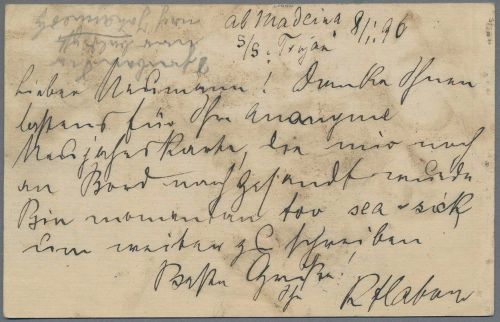 ab Madeira 8/I.96
S/S. "Trojan"
Lieber Neumann! Danke Ihnen
bestens für Ihre anonyme
Neujahrskarte, die mir noch
an Bord nachgesandt wurde
Bin momentan too sea-sick
um weiter zu schreiben
Besten Gruss!
Ihr